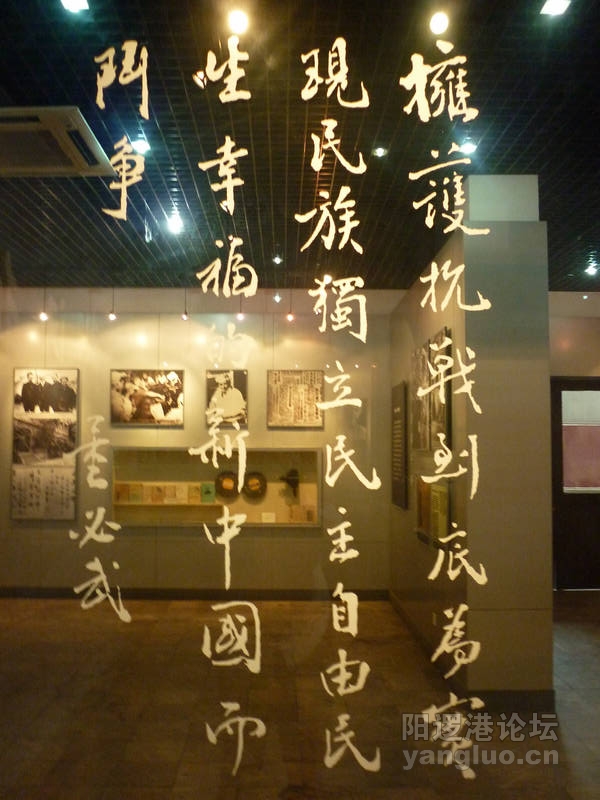 擁護抗戰到底為實
現民族獨立民主自由民
生幸福的新中國而
鬥争
董必武
阳逻港论坛
yangluo.cn